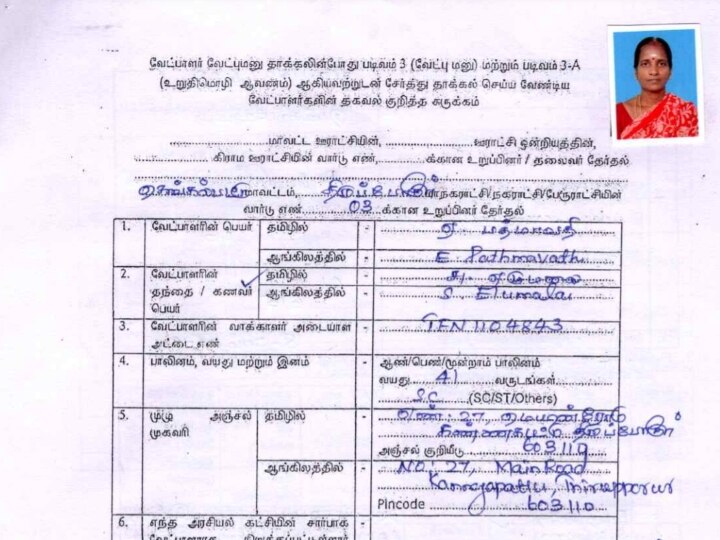 வேட்பாளர் வேட்புமனு தாக்கலின்போது படிவம் 3 (வேட்பு மனு) மற்றும் படிவம் 3-A
(உறுதிமொழி ஆவணம்) ஆகியவற்றுடன் சேர்த்து தாக்கல் செய்ய வேண்டிய
வேட்பாளர்களின் தகவல் குறித்த சுருக்கம்
மாவட்ட ஊராட்சியின், ஊராட்சி ஒன்றியத்தின்,
கிராம ஊராட்சியின் வார்டு எண், க்கான உறுப்பினர் / தலைவர் தேர்தல்
செங்கல்பட்டு மாவட்டம், திருப்போரூர் மாநகராட்சி/நகராட்சி/பேரூராட்சியின்
வார்டு எண் 03 க்கான உறுப்பினர் தேர்தல்
1. வேட்பாளரின் பெயர் தமிழில் - ஏ. பத்மாவதி
ஆங்கிலத்தில் E Pathmavathi
2. வேட்பாளரின் தந்தை / கணவர் பெயர் தமிழில் - ச. ஏழுமலை
ஆங்கிலத்தில் - S. Elumalai
3. வேட்பாளரின் வாக்காளர் அடையாள அட்டை எண் - TFN1104843
4. பாலினம், வயது மற்றும் இனம் - ஆண்/பெண்/மூன்றாம் பாலினம்
வயது 41 வருடங்கள்
SC (SC/ST/Others)
5. முழு அஞ்சல் முகவரி தமிழில் - எண்: 27, மெயின்ரோடு
கண்ணகப்பட்டு திருப்போரூர்
அஞ்சல் குறியீடு 603110
ஆங்கிலத்தில் - NO: 27, Main Road
Kannagapattu, Thirupporur
Pincode 603110
6. எந்த அரசியல் கட்சியின் சார்பாக